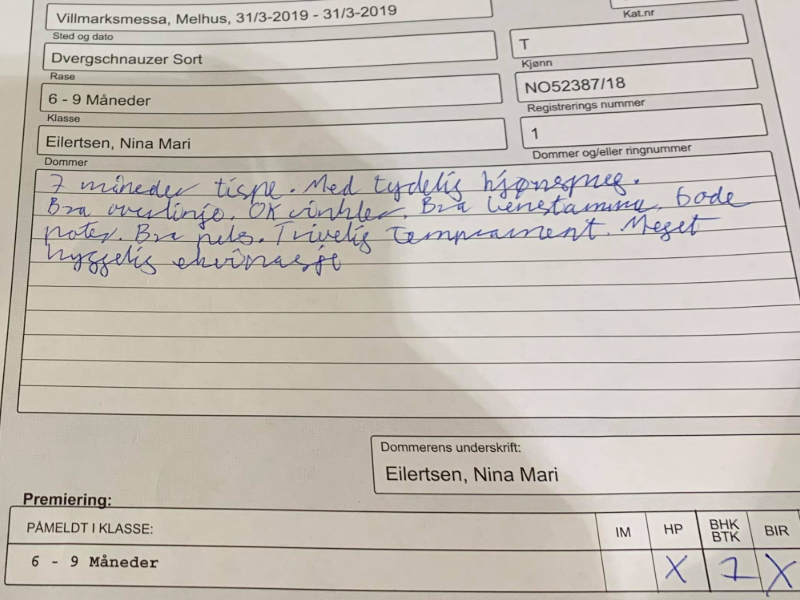 Villmarksmessa, Melhus, 31/3-2019 - 31/3-2019
Kat.nr
Sted og dato
T
Dvergschnauzer Sort
Kjønn
Rase
NO52387/18
6 - 9 Måneder
Registrerings nummer
Klasse
1
Eilertsen, Nina Mari
Dommer og/eller ringnummer
Dommer
7 måneder tispe. Med tydelig kjønspreg.
Bra overlinje. OK vinkler. Bra benstamme. Gode
poter. Bra pels. Trivelig temprament. Meget
hyggelig ekvipasje
Dommerens underskrift:
Eilertsen, Nina Mari
Premiering:
PÅMELDT I KLASSE: IM HP BHK BTK BIR
6 - 9 Måneder X 1 X